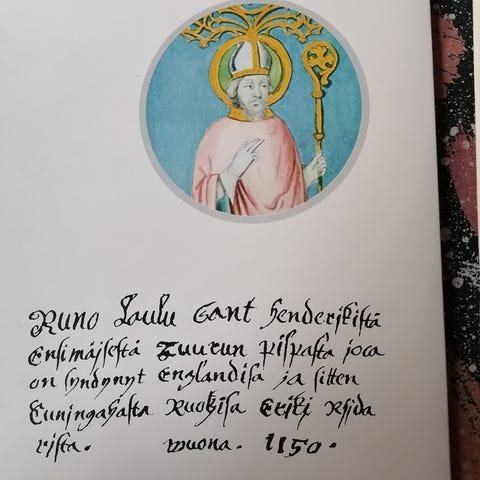 Runo Laulu Sant henderikistä
Ensimäjsestä Tuurun pispasta joca
on syndynyt Englandisa ja sitten
Cuningahasta Ruotzisa Eriki Rijda
rista. wuona. 1150.